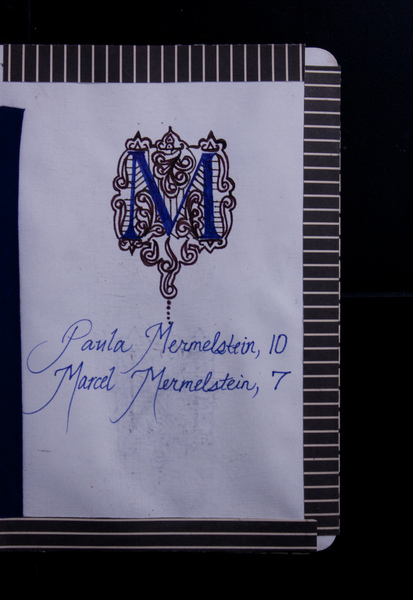 M
Paula Mermelstein, 10
Marcel Mermelstein, 7